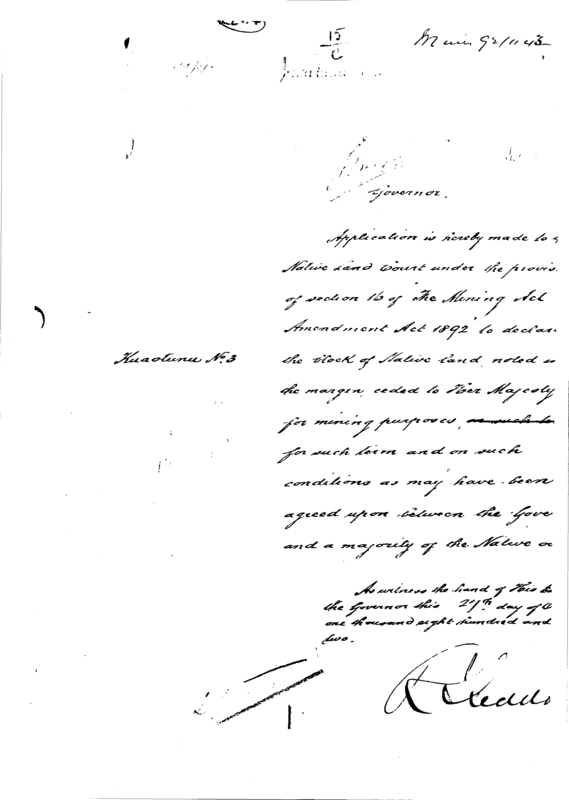 15
C
92/1143
Governor.
Application is hereby made to
Native Land Court under the provis
of section 16 of "The Mining Act
Amendment Act 1892" to declar
Kuaotunu No. 3
the block of Native land, noted in
the margin, ceded to Her Majesty
for mining purposes,
for such term and on such
conditions as may have been
agreed upon between the Gove
and a majority of the Native o
As witness the hand of His
the Governor this 27th day of
one thousand eight hundred and
two.